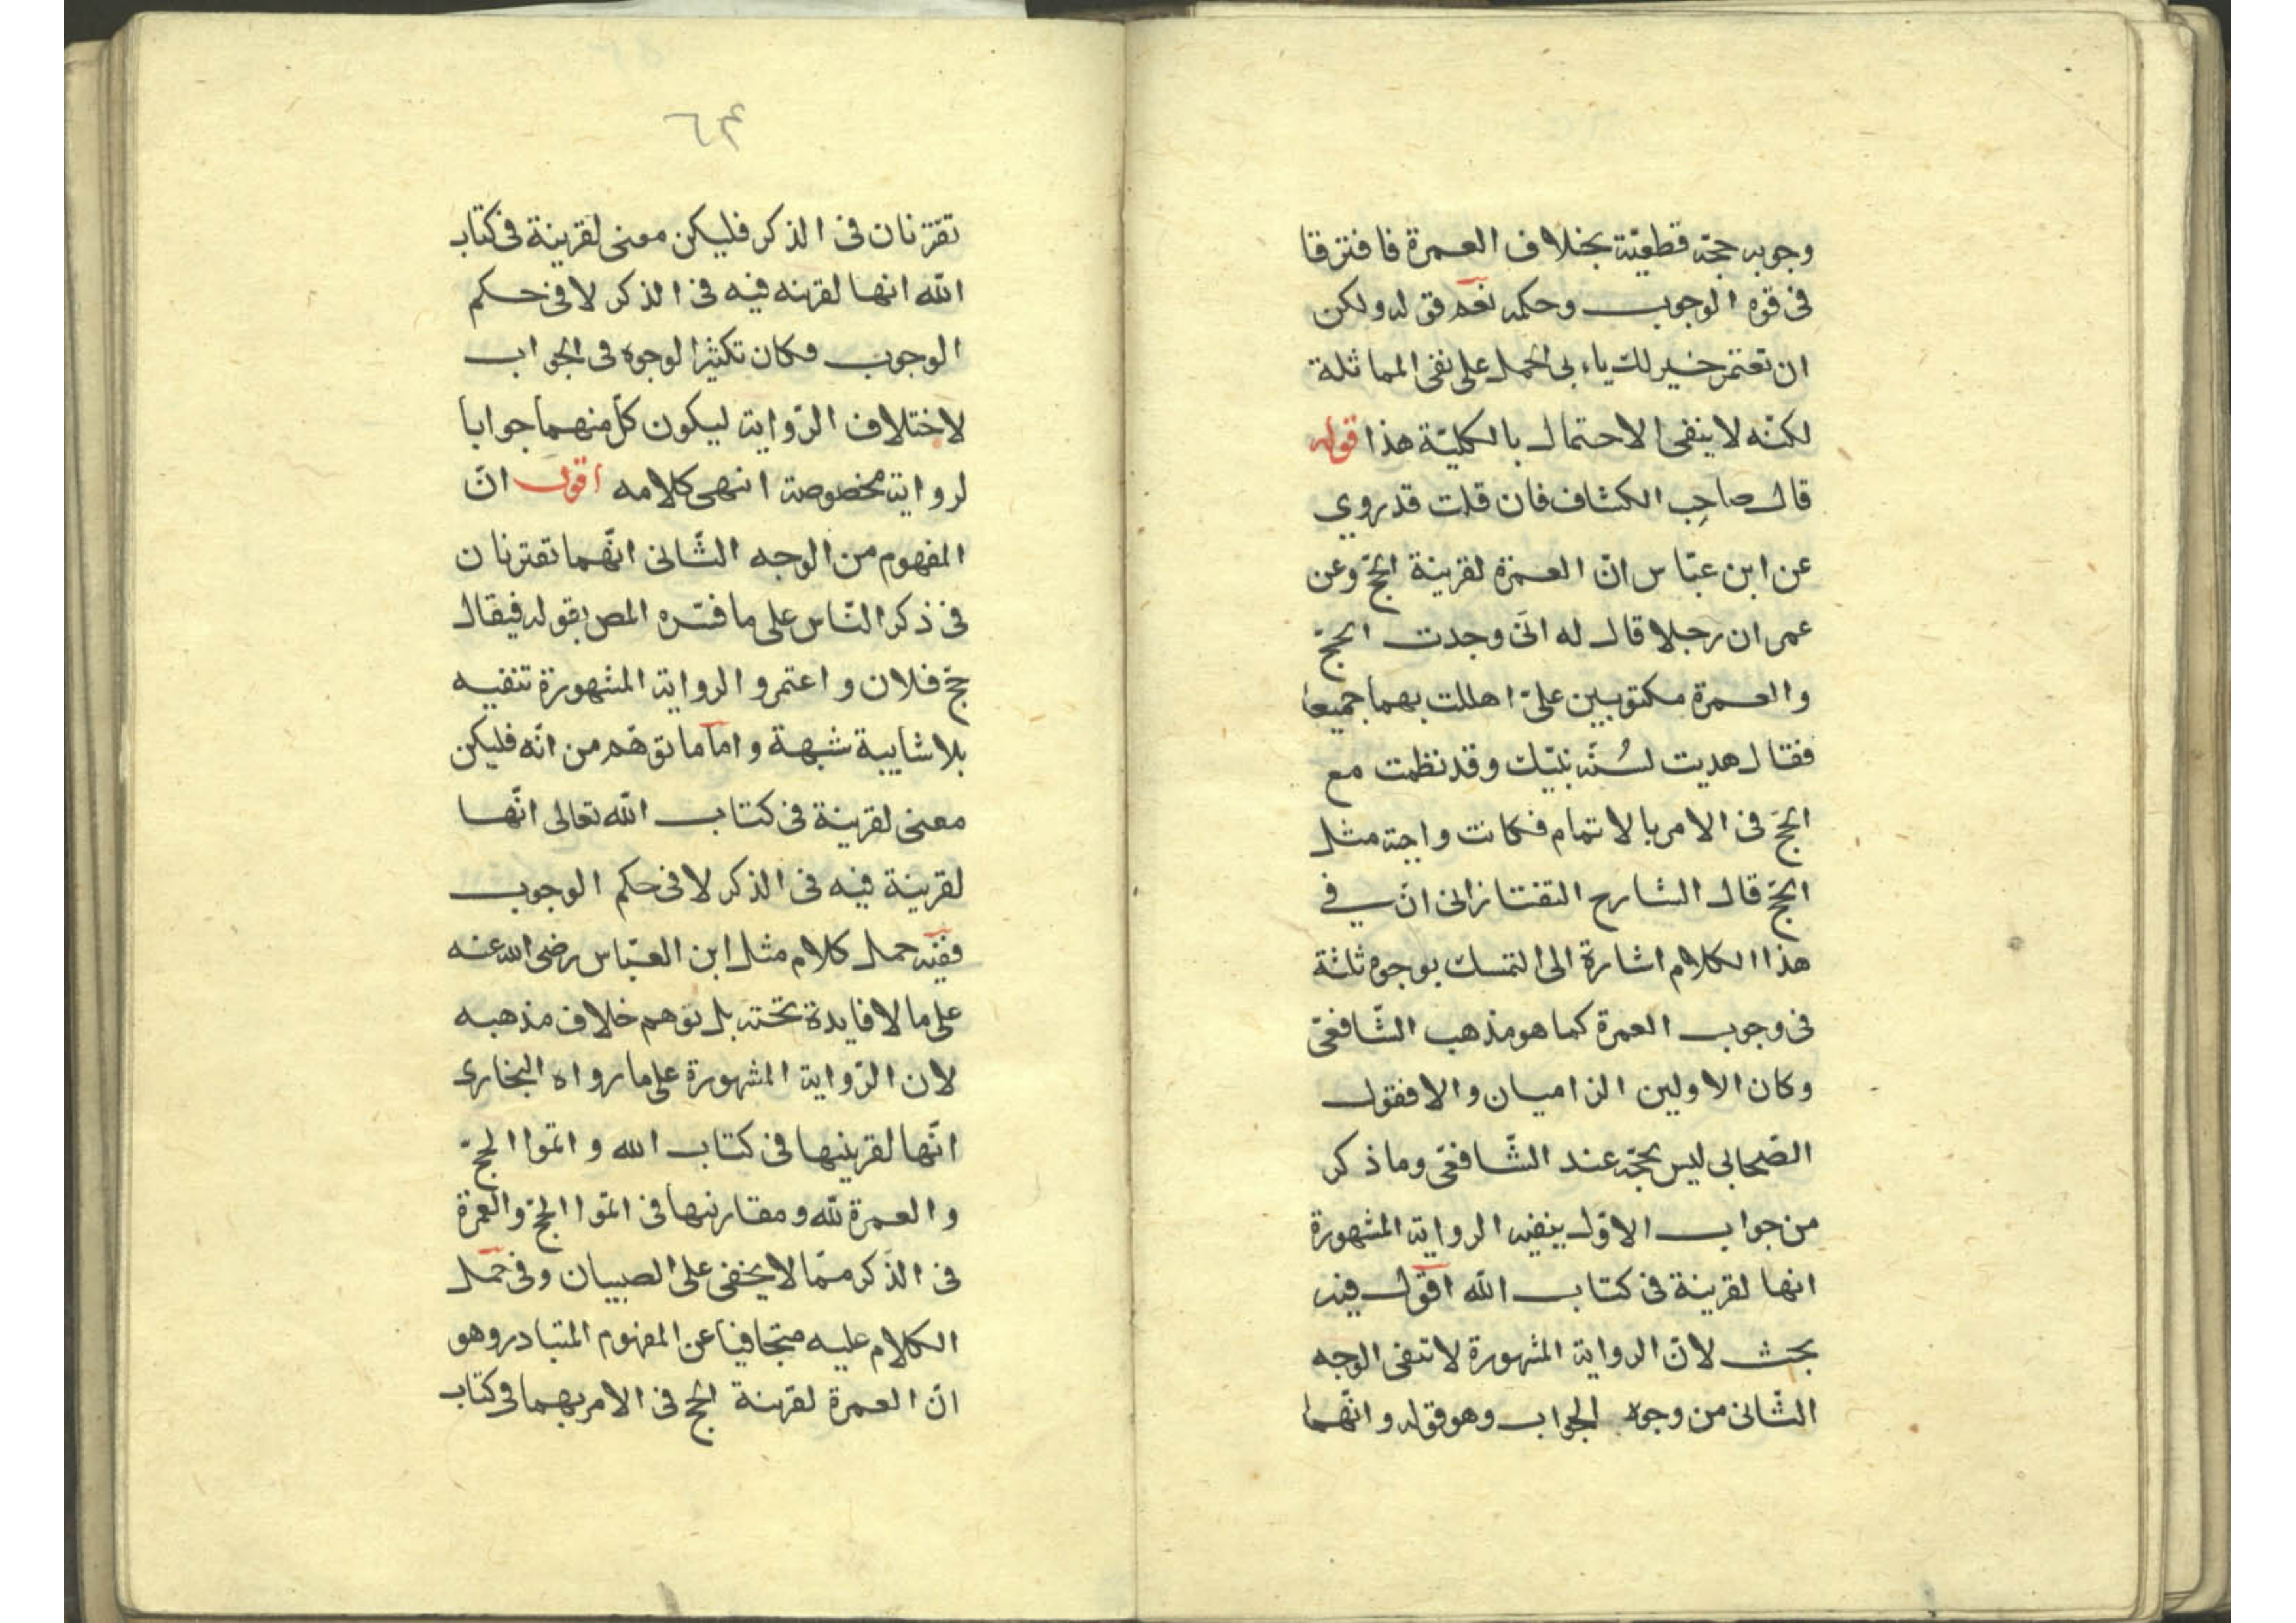 وجوبه حجّة قطعيّة بخلاف العمرة فافترقا
فى قوه الوجوب وحكمه نعم قوله ولكن
ان تعتمر خير لك ياءبى الحمل على نفى المماثلة
لكنّه لا ينفى الاحتمال بالكليّة هذا قوله
قال صاحِب الكشاف فان قلت قد روي
عن ابن عبّاس انّ العمرة لقرينة الحجّ وعن
عمر ان رجلا قال له انّى وجدت الحجّ
والعمرة مكتوبين علىّ اهللت بهما جميعا
فقال هديت لسُنّة نبيّك وقد نظمت مع
الحجّ فى الامر بالاتمام فكانت واجبة مثل
الحجّ قال الشارح التفتازانى انّ في
هذا الكلام اشارة الى التمسك بوجوه ثلثة
فى وجوب العمرة كما هو مذهب الشّافعىّ
وكان الاولين الزاميان والا فقول
الصّحابى ليس بحجّة عند الشّافعىّ وما ذكر
من جواب الاوّل ينفيه الرواية المشهورة
انها لقرينة فى كتاب اللّه اقول فيه
بحث لانّ الرواية المشهورة لا تنفى الوجه
الثّانى من وجوه الجواب وهو قوله وانّهما
٦٤
تقترنان فى الذكر فليكن معنى لقرينة فى كتاب
اللّه انها لقرينه فيه فى الذكر لا فى حكم
الوجوب وكان تكثيرا لوجوه فى الجواب
لاختلاف الرّواية ليكون كلّ منهما جوابا
لرواية مخصوصة انتهى كلامه اقول انّ
المفهوم من الوجه الثّانى انّهما تقترنان
فى ذكر النّاس على ما فسّره المص بقوله فيقال
حجّ فلان واعتمر والرواية المشهورة تنفيه
بلا شايبة شبهة وامّا ما توهّم من انّه فليكن
معنى لقرينة فى كتاب اللّه تعالى انّها
لقرينة فيه فى الذكر لا فى حكم الوجوب
ففيه حمل كلام مثل ابن العبّاس رضى الله عنه
على ما لا فايدة تحته بل توهم خلاف مذهبه
لان الرّواية المشهورة على ما رواه البخارى
انّها لقرينتها فى كتاب الله واتموا الحجّ
والعمرة للّه ومقارنتها فى اتموا الحجّ والعمرة
فى الذّكر ممّا لا يخفى على الصبيان وفى حمل
الكلام عليه متجافيا عن المفهوم المتبادر وهو
انّ العمرة لقرينة الحج فى الامر بهما فى كتاب